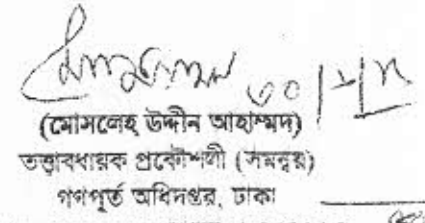 (মোসলেহ উদ্দীন আহাম্মদ)
তত্ত্বাবধায়ক প্রকৌশলী (সমন্বয়)
গণপূর্ত অধিদপ্তর, ঢাকা